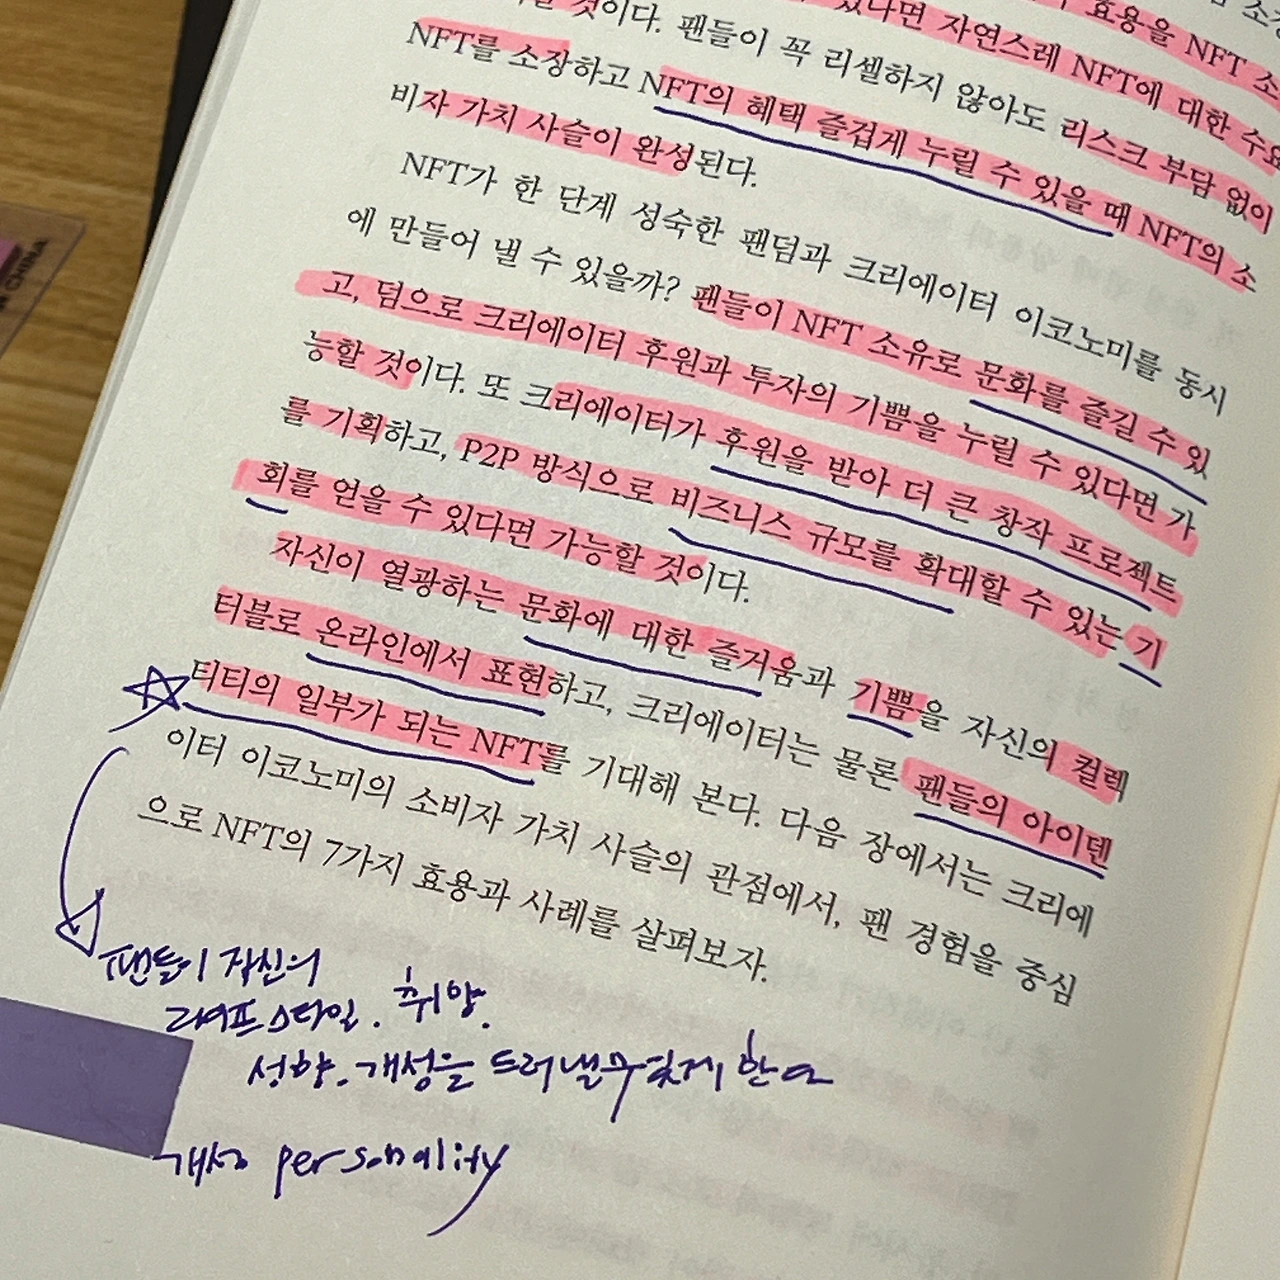 효용을 NFT 소
있다면 자연스레 NFT에 대한 수요
것이다. 팬들이 꼭 리셀하지 않아도 리스크 부담 없이
NFT를 소장하고 NFT의 혜택 즐겁게 누릴 수 있을 때 NFT의 소
비자 가치 사슬이 완성된다.
NFT가 한 단계 성숙한 팬덤과 크리에이터 이코노미를 동시
에 만들어 낼 수 있을까? 팬들이 NFT 소유로 문화를 즐길 수 있
고, 덤으로 크리에이터 후원과 투자의 기쁨을 누릴 수 있다면 가
능할 것이다. 또 크리에이터가 후원을 받아 더 큰 창작 프로젝트
를 기획하고, P2P 방식으로 비즈니스 규모를 확대할 수 있는 기
회를 얻을 수 있다면 가능할 것이다.
자신이 열광하는 문화에 대한 즐거움과 기쁨을 자신의 컬렉
터블로 온라인에서 표현하고, 크리에이터는 물론 팬들의 아이덴
티티의 일부가 되는 NFT를 기대해 본다. 다음 장에서는 크리에
이터 이코노미의 소비자 가치 사슬의 관점에서, 팬 경험을 중심
으로 NFT의 7가지 효용과 사례를 살펴보자.
팬들이 자신의
라이프스타일. 취향.
성향. 개성을 드러낼 수 있게 한다
개성 personality
CHINA